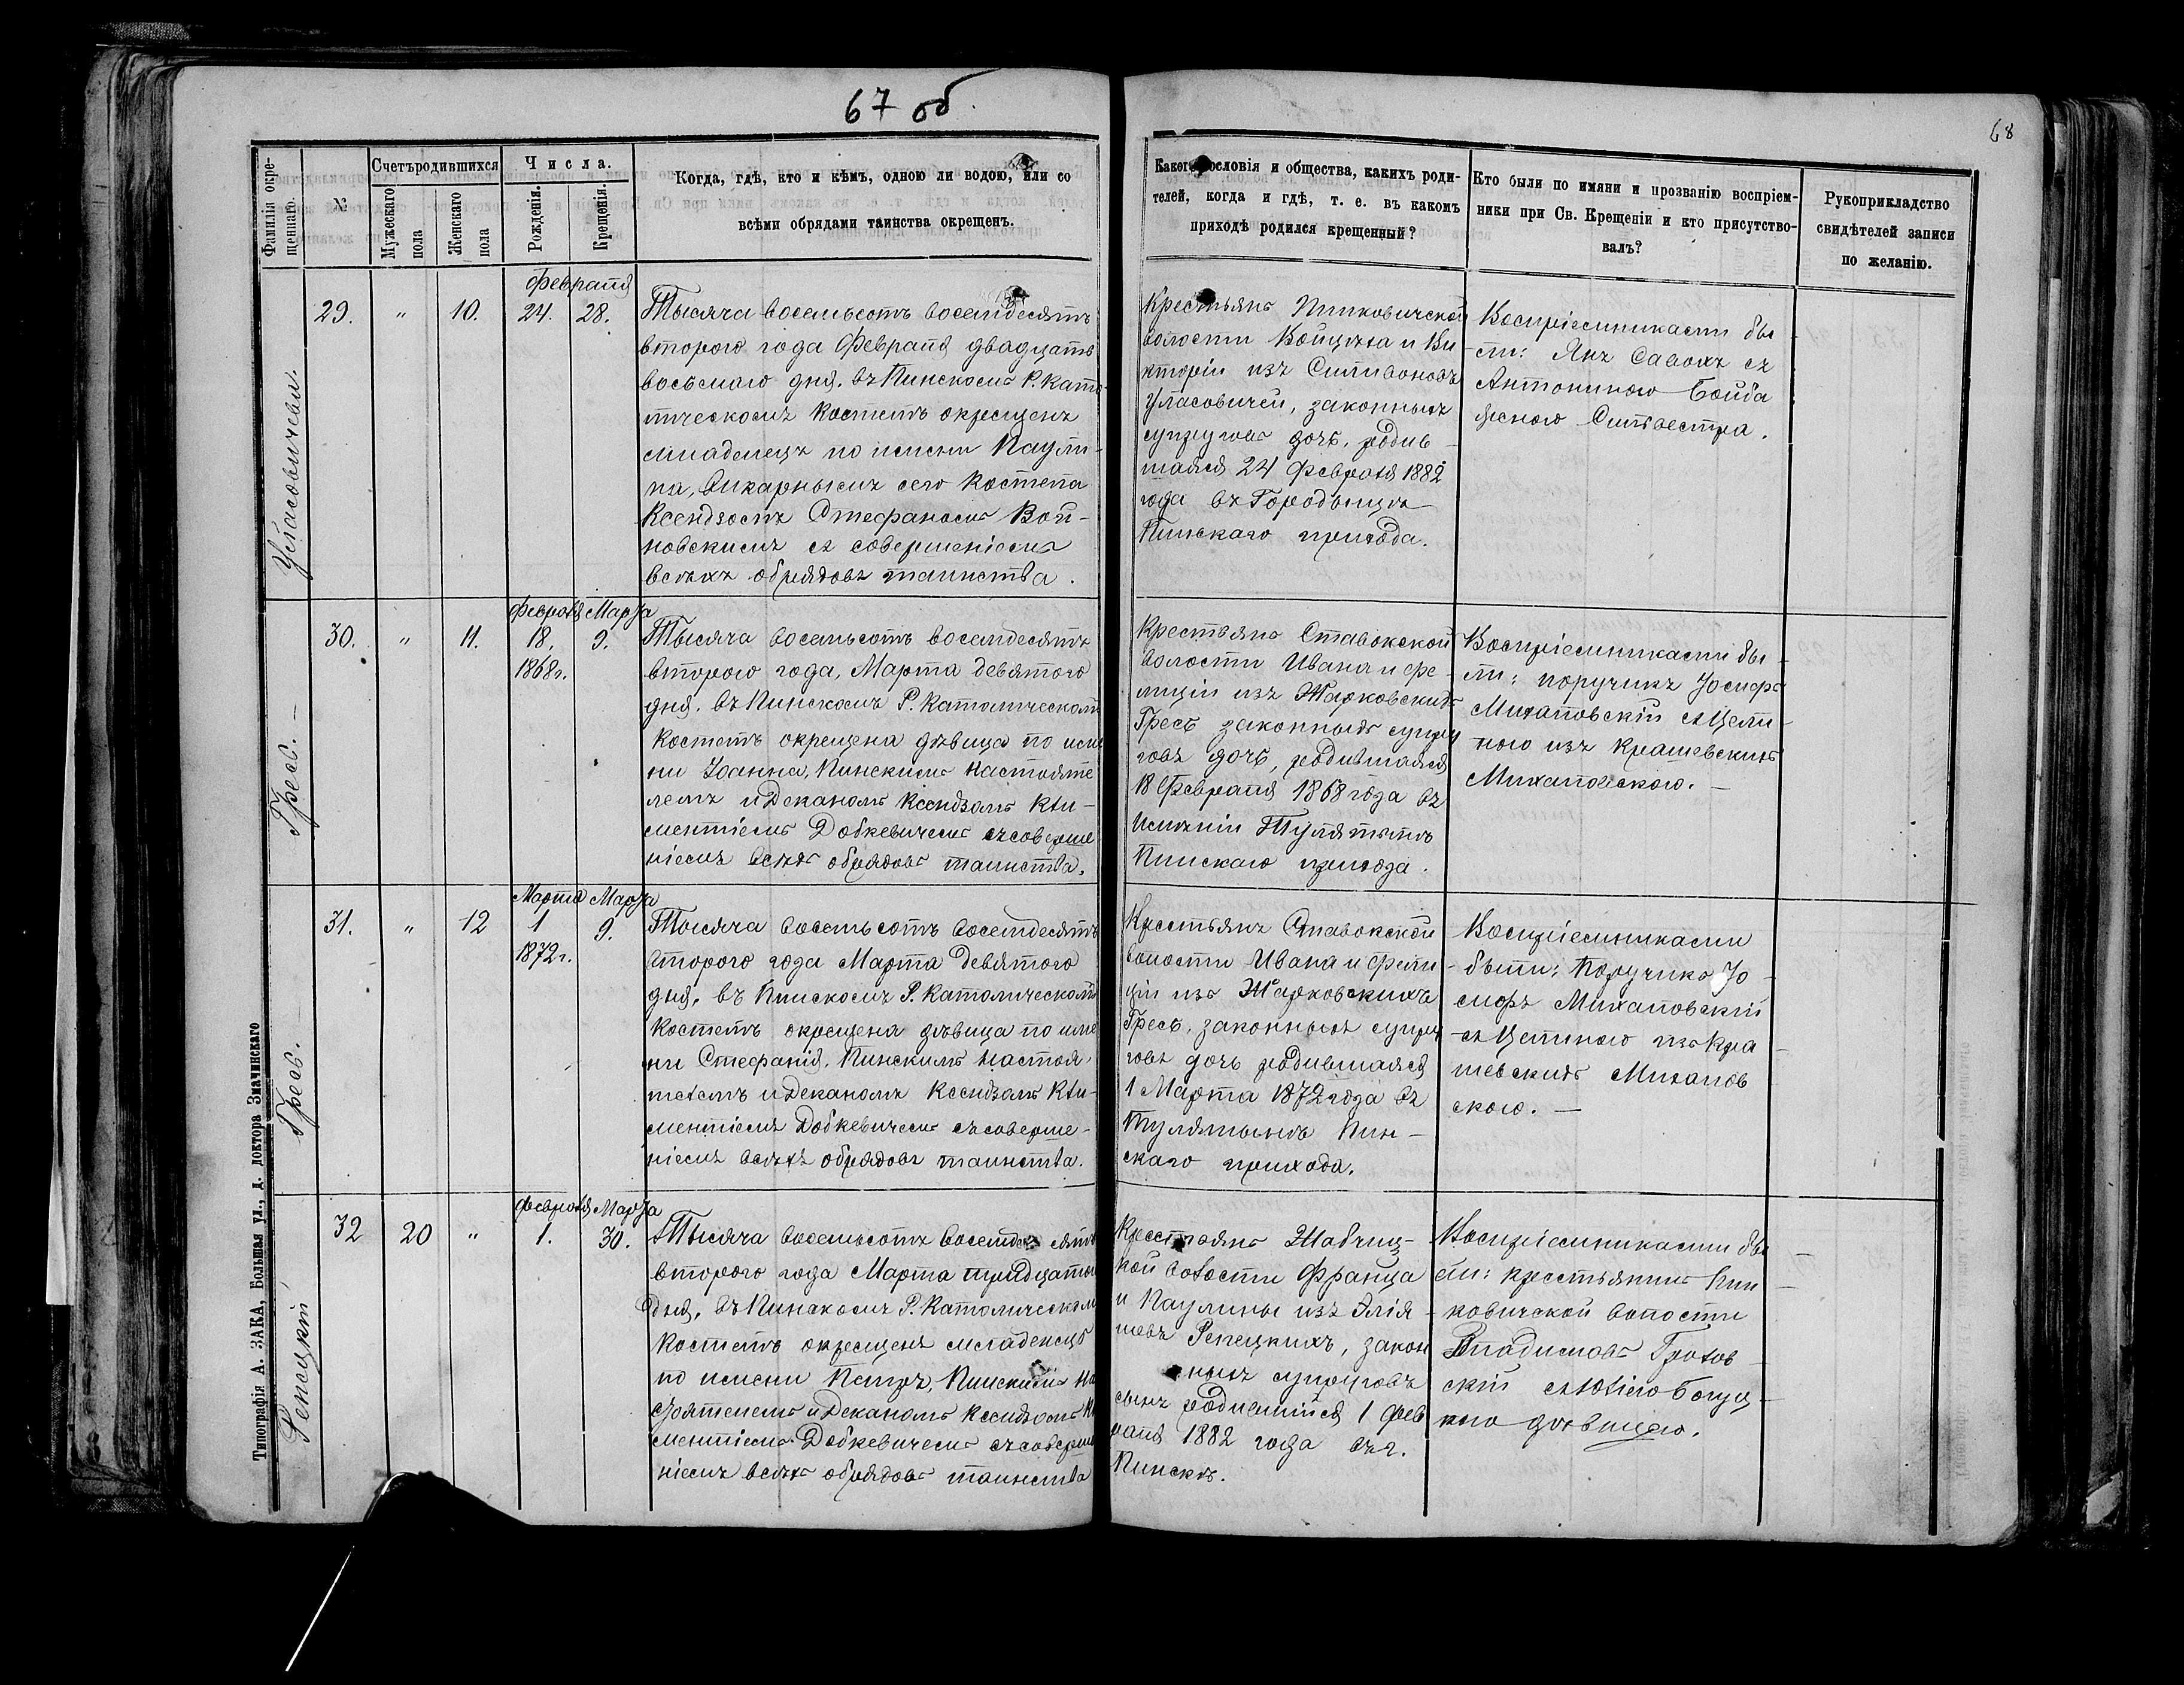 67 об.
68
Фамилія окре-
щеннаго.
№
Счетъ родившихся
Мужескаго
пола
Женскаго
пола
Числа.
Рожденія.
Крещенія.
Когда, гдѣ, кто и кѣмъ, одною ли водою, или со
всѣми обрядами таинства окрещенъ.
Какого сословія и общества, какихъ роди-
телей, когда и гдѣ, т. е. въ какомъ
приходѣ родился крещенный?
Кто были по имяни и прозванію воспріем-
ники при Св. Крещеніи и кто присутство-
валъ?
Рукоприкладство
свидѣтелей записи
по желанію.
Уласовичевн.
29.
"
10.
Февраля
24. 28.
Тысяча восемьсотъ восемдесятъ
второго года Февраля двадцать
восьмаго дня. въ Пинскомъ Р. Като-
лическомъ Костелѣ окрещенъ
младенецъ по имени Паули-
на, Викарнымъ сего Костела
Ксендзомъ Стефаномъ Вой-
новскимъ съ совершеніемъ
всѣхъ обрядовъ таинства.
Крестьянъ Пинковичской
волости Войцѣха и Ви-
кторіи изъ Силивоновъ
Уласовичей, законныхъ
супруговъ дочь, родив-
шаяся 24 Февраля 1882
года въ Городыщѣ
Пинскаго прихода.
Воспріемниками бы-
ли: Янъ Савохъ съ
Антониною
женою Сильвестра.
Гресь. -
30.
"
11.
Февраля Марта
18. 9.
1868 г.
Тысяча восемьсотъ восемдесятъ
второго года, Марта девятого
дня. въ Пинскомъ Р. Католическомъ
Костелѣ окрещена дѣвица по име
ни Іоанна, Пинскимъ Настояте
лемъ и Деканомъ Ксендзомъ Кли-
ментіемъ Добкевичемъ съ соверше
ніемъ всѣхъ обрядовъ таинства.
Крестьянъ Ставокской
волости Ивана и Фе-
лиціи изъ Жарковскихъ
Гресь законныхъ супру
говъ дочь, родившаяся
18 Февраля 1868 года въ
Имѣніи Тулятычъ
Пинскаго прихода.
Воспріемниками бы-
ли: поручикъ Іосифъ
Михаловскій съ Цели-
ною изъ Крашевскихъ
Михаловскою. -
Гресь. -
31.
"
12
Марта Марта
1 9.
1872 г.
Тысяча восемьсотъ восемдесятъ
второго года Марта девятого
дня. въ Пинскомъ Р. Католическомъ
Костелѣ окрещена дѣвица по име
ни Стефанія. Пинскимъ Настоя-
телемъ и Деканомъ Ксендзомъ Кли-
ментіемъ Добкевичемъ съ соверше-
ніемъ всѣхъ обрядовъ таинства.
Крестьянъ Ставокской
волости Ивана и Фели-
ціи изъ Жарковскихъ
Гресь, законныхъ супру
говъ дочь родившаяся
1 Марта 1872 года въ
Пин-
скаго прихода.
Воспріемниками
были: Поручикъ Іо-
сифъ Михаловскій
съ Целиною изъ Кра-
шевскихъ Михалов
скою. -
Репецкій
32
20
"
Февраля Марта
1. 30.
Тысяча восемьсотъ восемдесятъ
второго года Марта тридцатого
дня. въ Пинскомъ Р. Католическомъ
Костелѣ окрещенъ младенецъ
по имени Петръ, Пинскимъ На
стоятелемъ и Деканомъ Ксендзомъ Кли
ментіемъ Добкевичемъ съ соверше
ніемъ всѣхъ обрядовъ таинства
Крестьянъ Жабчиц-
кой волости Франца
и Паулины изъ Элія-
шевъ Репецкихъ, закон
ныхъ супруговъ
сынъ родившійся 1 Фев
раля 1882 года въ г.
Пинскѣ.
Воспріемниками бы
ли: крестьянинъ Пин-
ковичской волости
Владиславъ Грохов
скій съ Юліею
дѣвицею.
Типографія А. ЗАКА, Большая ул., д. доктора Змачинскаго